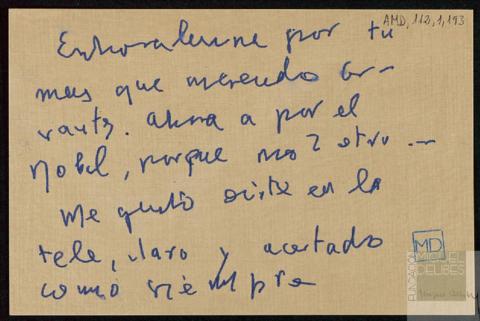 AMD, 112, 1, 193
Enhorabuena por tu
mas que merecido Cer-
vantes. Ahora a por el
Nobel, porque no? otro...
Me gustó oirte en la
tele, claro y acertado
como siempre
MD
FUNDACIÓN
MIGUEL
DELIBES